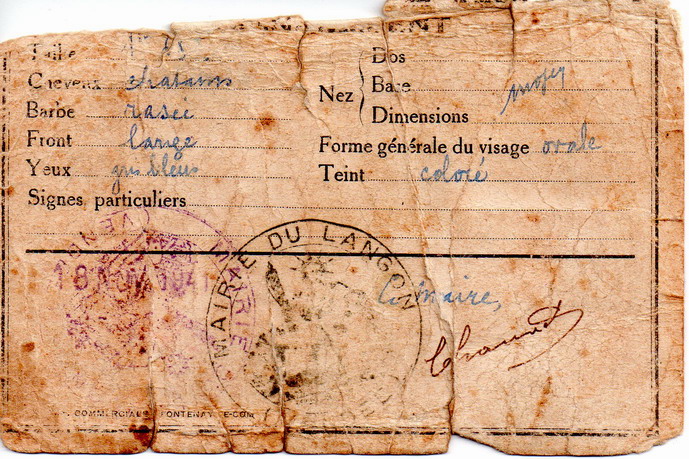 Taille 1m
Cheveux chatains
Barbe rasée
Front large
Yeux gris bleus
Signes particuliers
Nez
Dos
Base moyen
Dimensions
Forme générale du visage ovale
Teint coloré
MAIRIE
18 NOV 1941
MAIRIE DU LANGON
Le maire,
COMMERCIALE FONTENAY-LE-COM